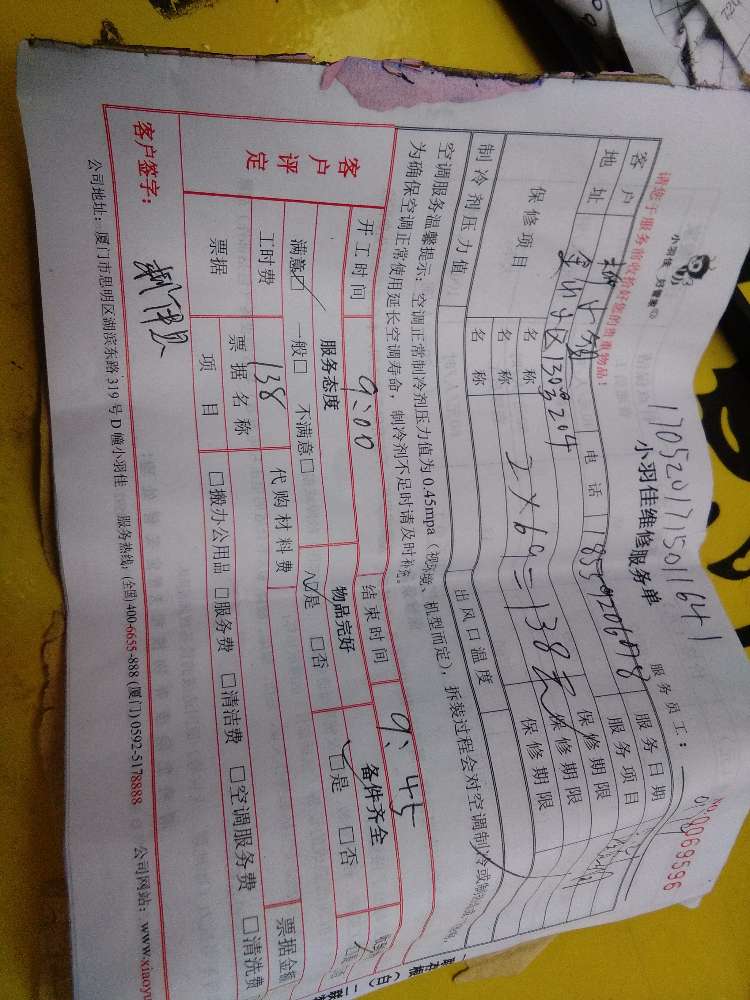 1705201715011641
小羽佳维修服务单
小羽佳
请您于服务前收拾好您的贵重物品！
服务员工：
No 0069596
客户
电话
服务日期
地址
服务项目
保修项目
名称
2×69=138元
保修期限
名称
保修期限
名称
保修期限
制冷剂压力值
出风口温度
空调服务温馨提示：空调正常制冷剂压力值为0.45mpa（视环境、机型而定），拆装过程会对空调制冷或制
为确保空调正常使用延长空调寿命，制冷剂不足时请及时补充。
客户评定
开工时间 9:00
结束时间 9:45
服务态度
物品完好
备件齐全
满意☑ 一般□ 不满意□
☑是 □否
☑是 □否
工时费 138
代购材料费
票据
票据名称
票据金额
项目
□搬办公用品 □服务费 □清洁费 □空调服务费 □清洗费
客户签字：
公司地址：厦门市思明区湖滨东路319号D幢小羽佳 服务热线：(全国)400-6655-888 (厦门)0592-5178888 公司网站：www.xiaoyu